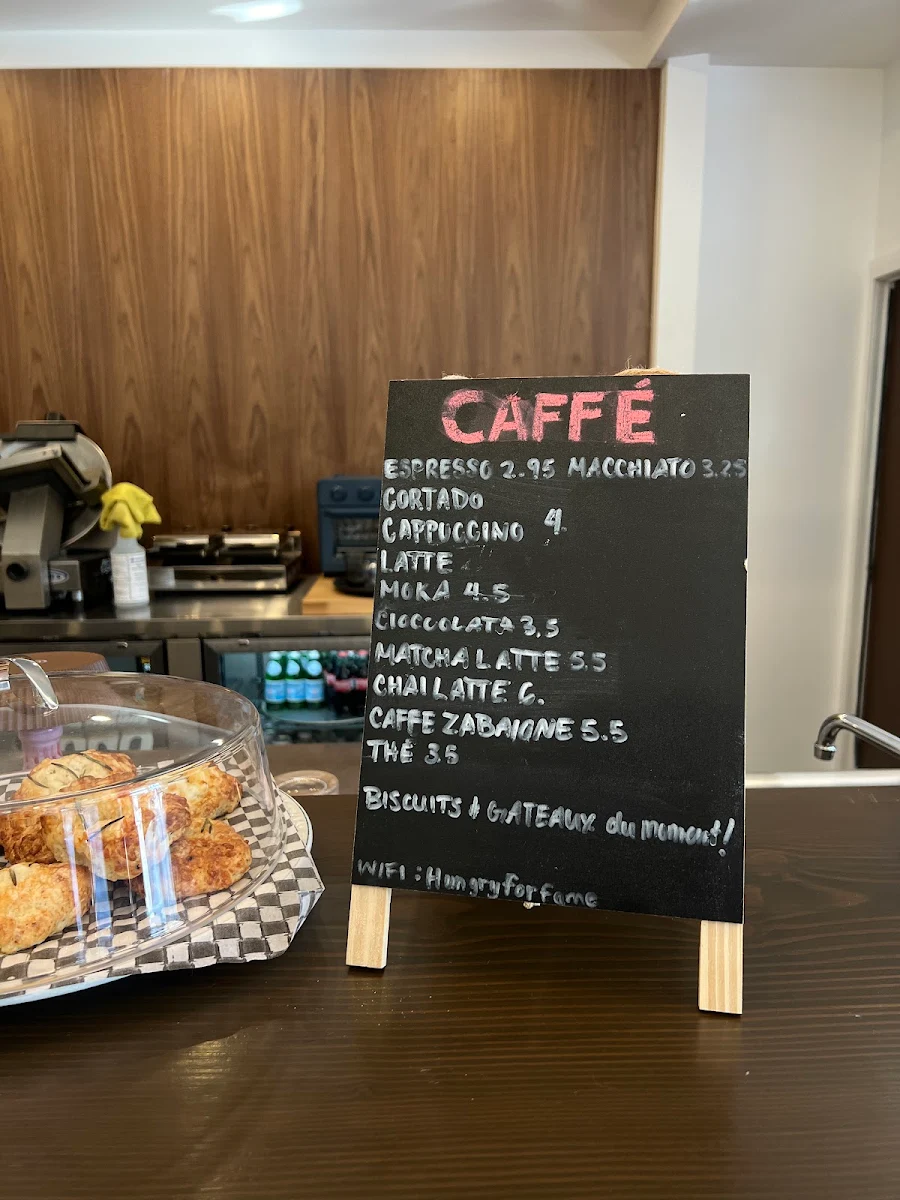 CAFFÉ
ESPRESSO 2.95 MACCHIATO 3.25
CORTADO
CAPPUCCINO 4.
LATTE
MOKA 4.5
CIOCCOLATA 3.5
MATCHA LATTE 5.5
CHAI LATTE 6.
CAFFE ZABAIONE 5.5
THÉ 3.5
BISCUITS & GATEAUX du moment!
WIFI : HungryForFame